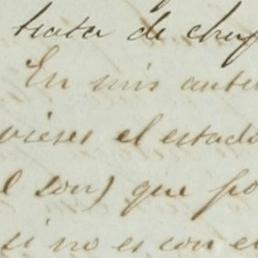 trata de chuf
En mis ante
vieses el estado
l son) que po
si no es con e